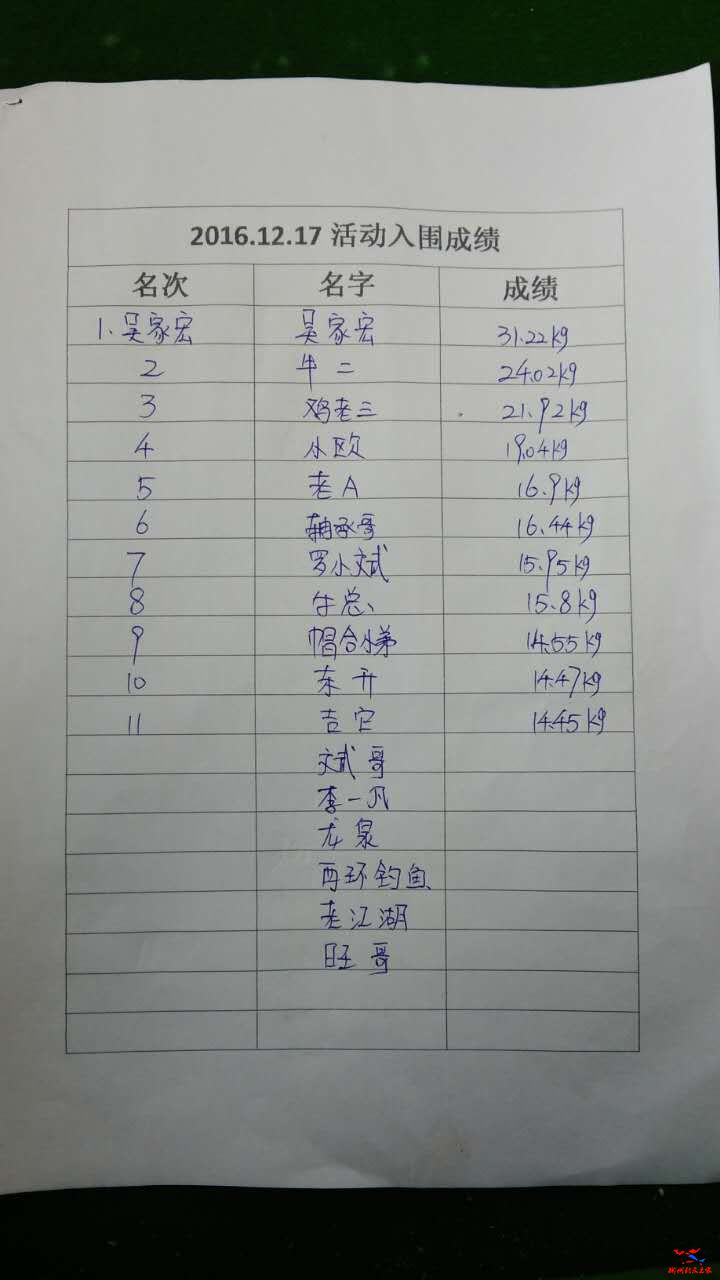 2016.12.17 活动入围成绩
名次 名字 成绩
1.吴家宏 吴家宏 31.22kg
2 牛二 24.02kg
3 鸡老三 21.92kg
4 小欧 19.04kg
5 老A 16.9kg
6 轴承哥 16.44kg
7 罗小斌 15.95kg
8 牛总 15.8kg
9 帽合小弟 14.55kg
10 东升 14.47kg
11 吉它 14.45kg
斌哥
李一凡
龙泉
再环钓鱼
老江湖
旺哥